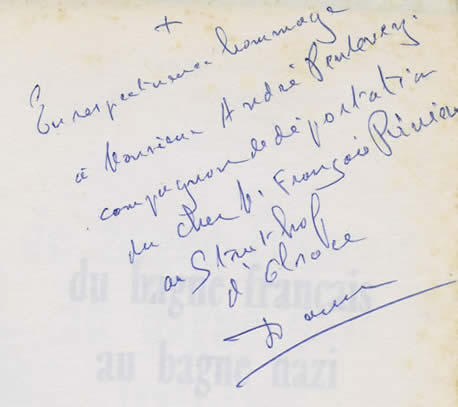 +
En respectueux hommage
à Monsieur André
compagnon de déportation
du cher François
au Struthof
d'Alsace
du bagne français
au bagne nazi